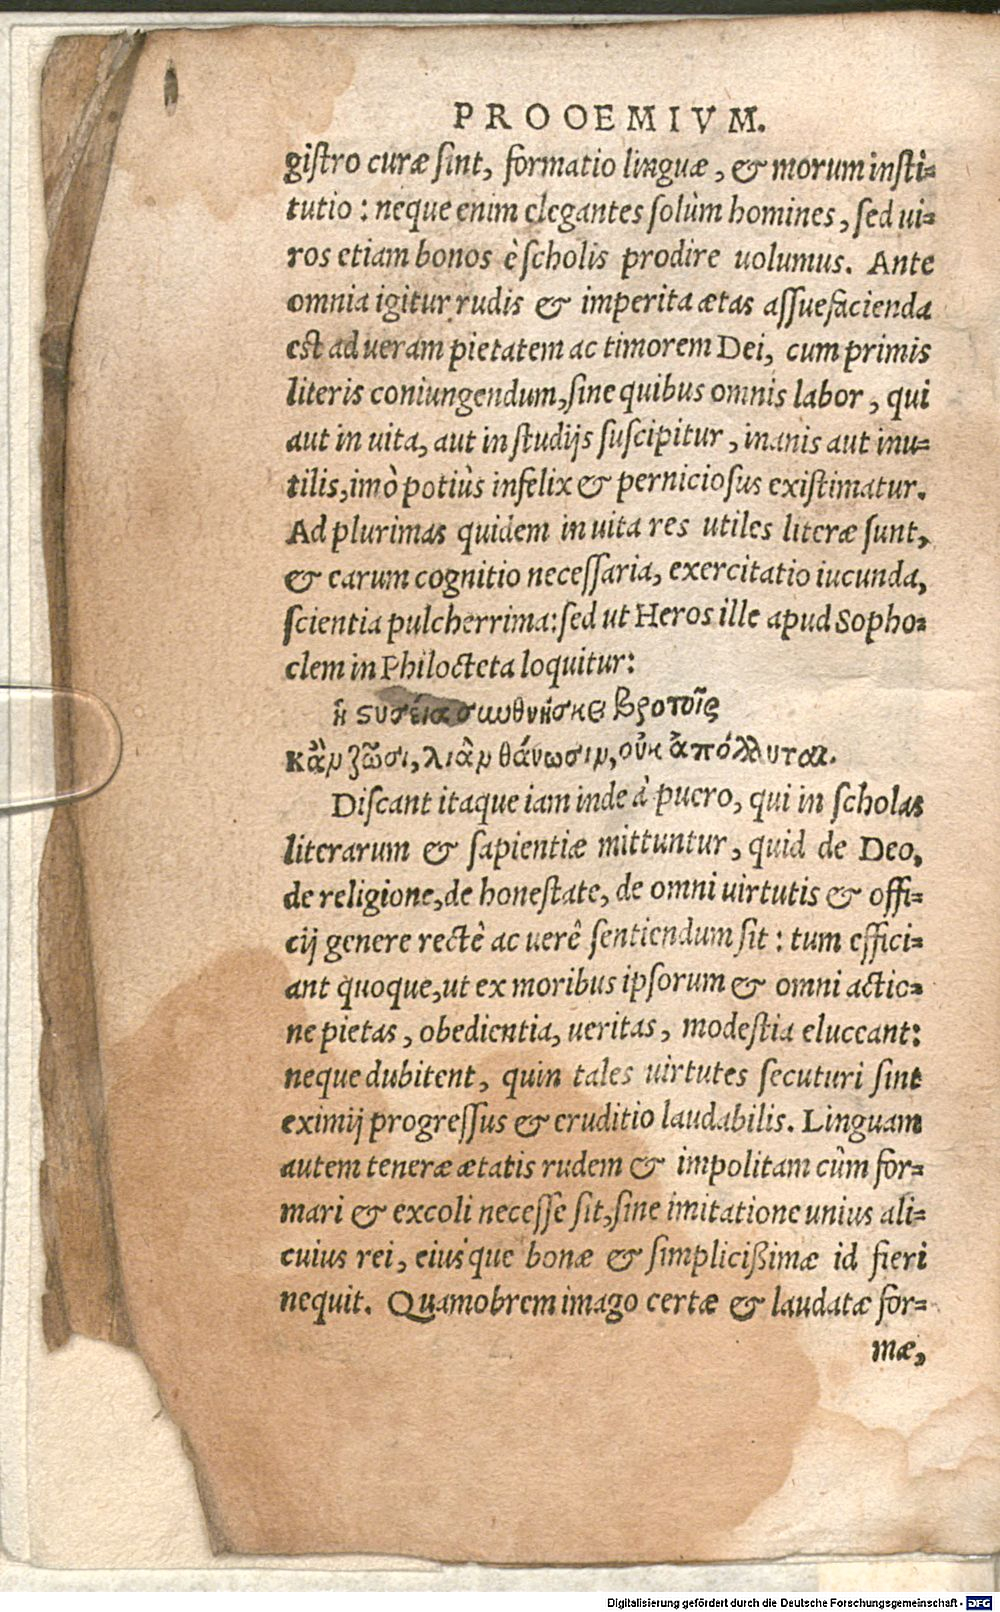 PROOEMIVM.
gistro curæ sint, formatio linguæ, & morum insti-
tutio: neque enim elegantes solùm homines, sed ui-
ros etiam bonos è scholis prodire uolumus. Ante
omnia igitur rudis & imperita ætas assuefacienda
est ad ueram pietatem ac timorem Dei, cum primis
literis coniungendum, sine quibus omnis labor, qui
aut in uita, aut in studijs suscipitur, inanis aut inu-
tilis, imò potiùs infelix & perniciosus existimatur.
Ad plurimas quidem in uita res utiles literæ sunt,
& earum cognitio necessaria, exercitatio iucunda,
scientia pulcherrima: sed ut Heros ille apud Sopho-
clem in Philocteta loquitur:
ἡ ευσέβεια συνθνήσκει βροτοῖς
κἂν ζῶσι, κἂν θάνωσιν, οὐκ ἀπόλλυται.
Discant itaque iam inde à puero, qui in scholas
literarum & sapientiæ mittuntur, quid de Deo,
de religione, de honestate, de omni uirtutis & offi-
cij genere rectè ac uerè sentiendum sit: tum effici-
ant quoque, ut ex moribus ipsorum & omni actio-
ne pietas, obedientia, ueritas, modestia eluceant:
neque dubitent, quin tales uirtutes secuturi sint
eximij progressus & eruditio laudabilis. Linguam
autem teneræ ætatis rudem & impolitam cûm for-
mari & excoli necesse sit, sine imitatione unius ali-
cuius rei, eiusque bonæ & simplicißimæ id fieri
nequit. Quamobrem imago certæ & laudatæ for-
mæ,
Digitalisierung gefördert durch die Deutsche Forschungsgemeinschaft - DFG